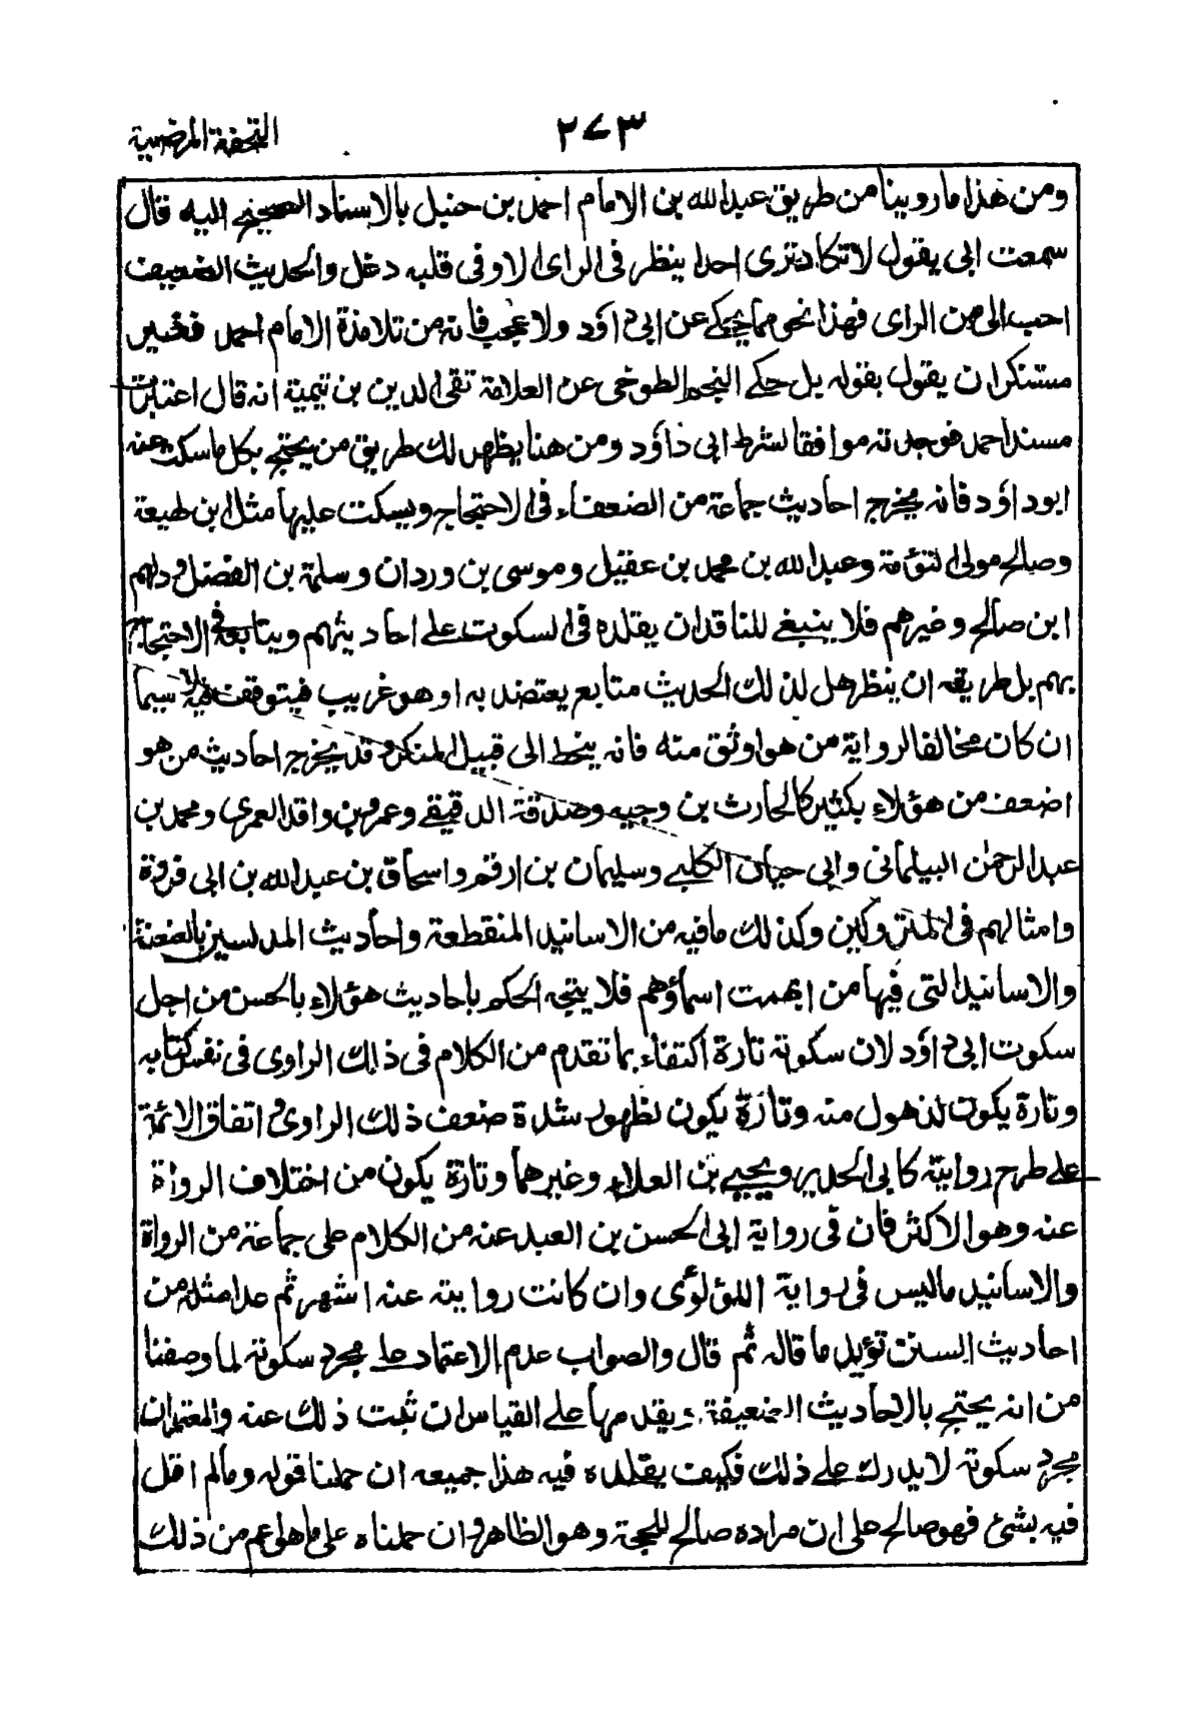 التحفة المرضية
٢٧٣
ومن هذا ما روينا من طريق عبد الله بن الامام احمد بن حنبل بالاسناد الصحيح اليه قال
سمعت ابى يقول لا تكاد ترى احدا ينظر فى الراى الا وفى قلبه دغل والحديث الضعيف
احب الى من الراى فهذا نحو مما يحكى عن ابى داؤد ولا عجب فانه من تلامذة الامام احمد فغير
مستنكر ان يقول بقوله بل حكى النجم الطوخى عن العلامة تقى الدين بن تيمية انه قال اعتبرت
مسند احمد فوجدته موافقا لشرط ابى داؤد ومن هنا يظهر لك طريق من يحتج بكل ما سكت عنه
ابو داؤد فانه يخرج احاديث جماعة من الضعفاء فى الاحتجاج ويسكت عليها مثل ابن لهيعة
وصالح مولى التؤمة وعبد الله بن محمد بن عقيل وموسى بن وردان وسلمة بن الفضل ودلهم
ابن صالح وغيرهم فلا ينبغى للناقد ان يقلده فى السكوت على احاديثهم ويتابعه فى الاحتجاج
بهم بل طريقه ان ينظر هل لذلك الحديث متابع يعتضد به او هو غريب فيتوقف فيه لا سيما
ان كان مخالفا لرواية من هو اوثق منه فانه ينحط الى قبيل المنكر وقد يخرج احاديث من هو
اضعف من هؤلاء بكثير كالحارث بن وجيه وصدقة الدقيقى وعمرو بن واقد العمرى ومحمد بن
عبد الرحمن البيلمانى وابى حيان الكلبى وسليمان بن ارقم واسحاق بن عبد الله بن ابى فروة
وامثالهم فى المتروكين وكذلك ما فيه من الاسانيد المنقطعة واحاديث المدلسين بالعنعنة
والاسانيد التى فيها من ابهمت اسماؤهم فلا يتجه الحكم باحاديث هؤلاء بالحسن من اجل
سكوت ابى داؤد لان سكوته تارة اكتفاء بما تقدم من الكلام فى ذلك الراوى فى نفس كتابه
وتارة يكون لذهول منه وتارة يكون لظهور شدة ضعف ذلك الراوى و اتفاق الائمة
على طرح روايته كابى الحدير ويحيى بن العلاء وغيرهما وتارة يكون من اختلاف الرواة
عنه وهو الاكثر فان فى رواية ابى الحسن بن العبد عنه من الكلام على جماعة من الرواة
والاسانيد ما ليس فى رواية اللؤلؤى وان كانت روايته عنه اشهر ثم عدا مثله من
احاديث السنن تؤيد ما قاله ثم قال والصواب عدم الاعتماد على مجرد سكوته لما وصفنا
من انه يحتج بالاحاديث الضعيفة ويقدمها على القياس ان ثبت ذلك عنه والمعتبران
مجرد سكوته لا يدرك على ذلك فكيف يقلده فيه هذا جميعه ان حملنا قوله وما لم اقل
فيه بشئ فهو صالح على ان مراده صالح للحجة وهو الظاهر وان حملناه على ما هو اعم من ذلك